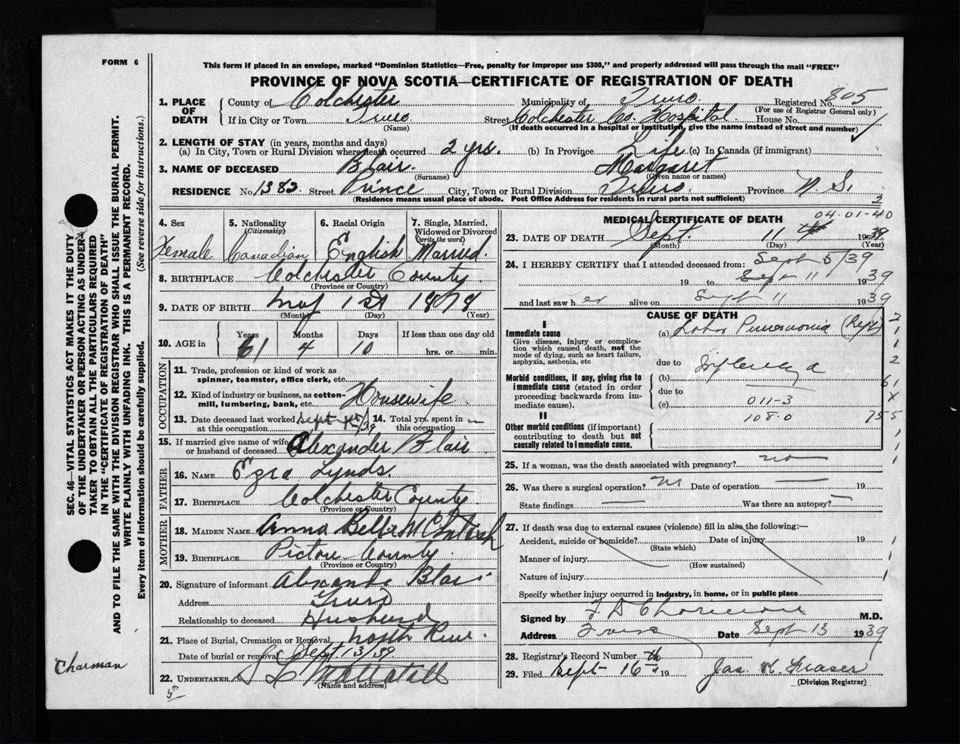 FORM 6
This form if placed in an envelope, marked "Dominion Statistics—Free, penalty for improper use $300," and properly addressed will pass through the mail "FREE"
PROVINCE OF NOVA SCOTIA—CERTIFICATE OF REGISTRATION OF DEATH
1. PLACE OF DEATH
County of Colchester Municipality of Truro Registered No. 805
(For use of Registrar General only)
If in City or Town Truro Street Colchester Co. Hospital House No.
(Name) (If death occurred in a hospital or institution, give the name instead of street and number)
2. LENGTH OF STAY (in years, months and days)
(a) In City, Town or Rural Division where death occurred 2 yrs. (b) In Province Life (c) In Canada (if immigrant)
3. NAME OF DECEASED Blair Margaret
(Surname) (Given name or names)
RESIDENCE No. 1382 Street Prince City, Town or Rural Division Truro Province N.S.
(Residence means usual place of abode. Post Office Address for residents in rural parts not sufficient) 2
4. Sex
Female
5. Nationality
(Citizenship)
Canadian
6. Racial Origin
English
7. Single, Married, Widowed or Divorced
(write the word)
Married.
8. BIRTHPLACE Colchester County
(Province or County)
9. DATE OF BIRTH May 1st 1878
(Month) (Day) (Year)
10. AGE in
Years Months Days If less than one day old
61 4 10 hrs. or min.
OCCUPATION
11. Trade, profession or kind of work as spinner, teamster, office clerk, etc.
12. Kind of industry or business, as cotton-mill, lumbering, bank, etc. Housewife
13. Date deceased last worked at this occupation Sept 1st/39
14. Total yrs. spent in this occupation
15. If married give name of wife or husband of deceased Alexander Blair
FATHER
16. NAME Ezra Lynds
17. BIRTHPLACE Colchester County
(Province or County)
MOTHER
18. MAIDEN NAME Anna Bell McIntosh
19. BIRTHPLACE Pictou County
(Province or County)
20. Signature of informant Blair
Address Truro
Relationship to deceased Husband
21. Place of Burial, Cremation or Removal North River
Date of burial or removal Sept 13/39
22. UNDERTAKER
(Name and address)
MEDICAL CERTIFICATE OF DEATH
04-01-40
23. DATE OF DEATH Sept. 11 19
(Month) (Day) (Year)
24. I HEREBY CERTIFY that I attended deceased from: Sept 5/39
19 to Sept 11 1939
and last saw her alive on Sept 11 1939
CAUSE OF DEATH
I
Immediate cause
Give disease, injury or complication which caused death, not the mode of dying, such as heart failure, asphyxia, asthenia, etc
(a) Lobar Pneumonia
due to
Morbid conditions, if any, giving rise to immediate cause (stated in order proceeding backwards from immediate cause).
(b) Influenza
due to
(c) 011-3
108.0
II
Other morbid conditions (if important) contributing to death but not causally related to immediate cause.
25. If a woman, was the death associated with pregnancy? no
26. Was there a surgical operation? no Date of operation 19
State findings Was there an autopsy?
27. If death was due to external causes (violence) fill in also the following:—
Accident, suicide or homicide? Date of injury 19
(State which)
Manner of injury
(How sustained)
Nature of injury
Specify whether injury occurred in industry, in home, or in public place
Signed by M.D.
Address Truro Date Sept 13 1939
28. Registrar's Record Number
29. Filed Sept 16th 19 Jas. K. Fraser
(Division Registrar)
SEC. 46—VITAL STATISTICS ACT MAKES IT THE DUTY
OF THE UNDERTAKER OR PERSON ACTING AS UNDERTAKER TO OBTAIN ALL THE PARTICULARS REQUIRED
IN THE "CERTIFICATE OF REGISTRATION OF DEATH"
AND TO FILE THE SAME WITH THE DIVISION REGISTRAR WHO SHALL ISSUE THE BURIAL PERMIT.
WRITE PLAINLY WITH UNFADING INK. THIS IS A PERMANENT RECORD.
Every item of Information should be carefully supplied. (See reverse side for instructions.)
Charman